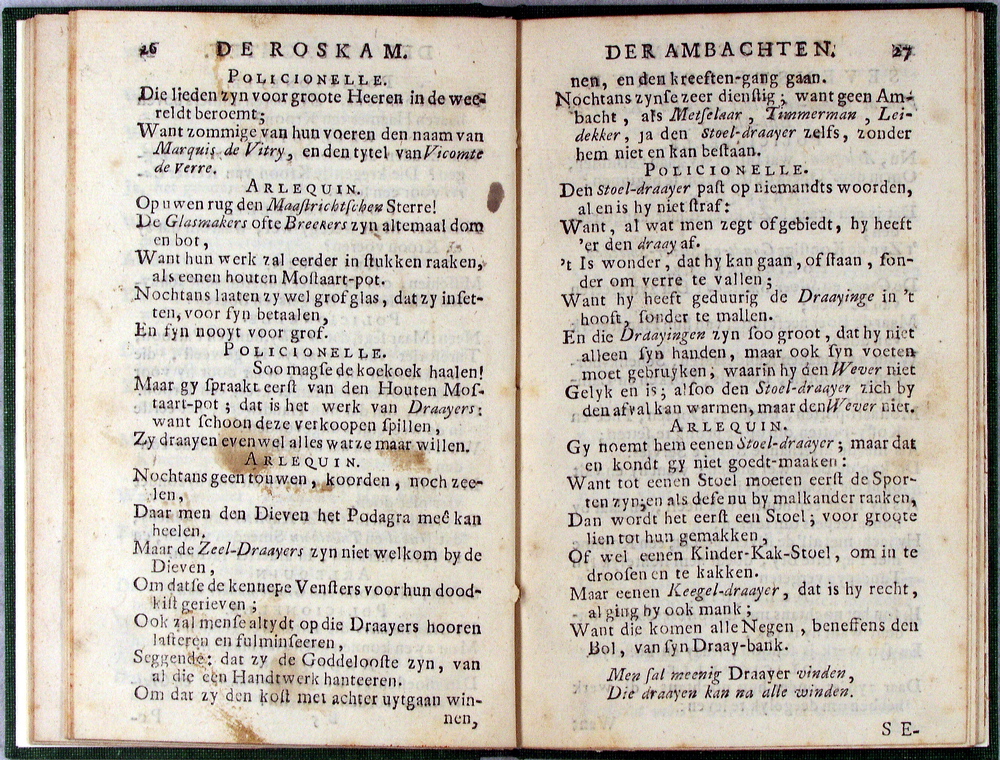 26 DE ROSKAM.
POLICIONELLE.
Die lieden zyn voor groote Heeren in de wee-
reldt beroemt;
Want zommige van hun voeren den naam van
Marquis de Vitry, en den tytel van Vicomte
de verre.
ARLEQUIN.
Op uwen rug den Maastrichtschen Sterre!
De Glasmakers ofte Breekers zyn altemaal dom
en bot,
Want hun werk zal eerder in stukken raaken,
als eenen houten Mostaart-pot.
Nochtans laaten zy wel grof glas, dat zy inset-
ten, voor fyn betaalen,
En fyn nooyt voor grof.
POLICIONELLE.
Soo magse de koekoek haalen!
Maar gy spraakt eerst van den Houten Mos-
taart-pot; dat is het werk van Draayers:
want schoon deze verkoopen spillen,
Zy draayen evenwel alles watze maar willen.
ARLEQUIN.
Nochtans geen touwen, koorden, noch zee-
len,
Daar men den Dieven het Podagra meê kan
heelen.
Maar de Zeel-Draayers zyn niet welkom by de
Dieven,
Om datse de kennepe Vensters voor hun dood-
kist gerieven;
Ook zal mense altydt op die Draayers hooren
lasteren en fulminseeren,
Seggende: dat zy de Goddelooste zyn, van
al die een Handtwerk hanteeren.
Om dat zy den kost met achter uytgaan win-
nen,
DER AMBACHTEN. 27
nen, en den kreeften-gang gaan.
Nochtans zynse zeer dienstig; want geen Am-
bacht, als Metselaar, Timmerman, Lei-
dekker, ja den Stoel-draayer zelfs, zonder
hem niet en kan bestaan.
POLICIONELLE.
Den Stoel-draayer past op niemandts woorden,
al en is hy niet straf:
Want, al wat men zegt of gebiedt, hy heeft
'er den draay af.
't Is wonder, dat hy kan gaan, of staan, son-
der om verre te vallen;
Want hy heeft geduurig de Draayinge in 't
hooft, sonder te mallen.
En die Draayingen zyn soo groot, dat hy niet
alleen syn handen, maar ook syn voeten
moet gebruyken, waarin hy den Wever niet
Gelyk en is; alsoo den Stoel-draayer zich by
den afval kan warmen, maar den Wever niet.
ARLEQUIN.
Gy noemt hem eenen Stoel-draayer; maar dat
en kondt gy niet goedt-maaken:
Want tot eenen Stoel moeten eerst de Spor-
ten zyn; en als dese nu by malkander raaken,
Dan wordt het eerst een Stoel; voor groote
lien tot hun gemakken,
Of wel eenen Kinder-Kak-Stoel, om in te
droosen en te kakken.
Maar eenen Keegel-draayer, dat is hy recht,
al ging hy ook mank;
Want die komen alle Negen, beneffens den
Bol, van syn Draay-bank.
Men sal meenig Draayer vinden,
Die draayen kan na alle winden.
S E-